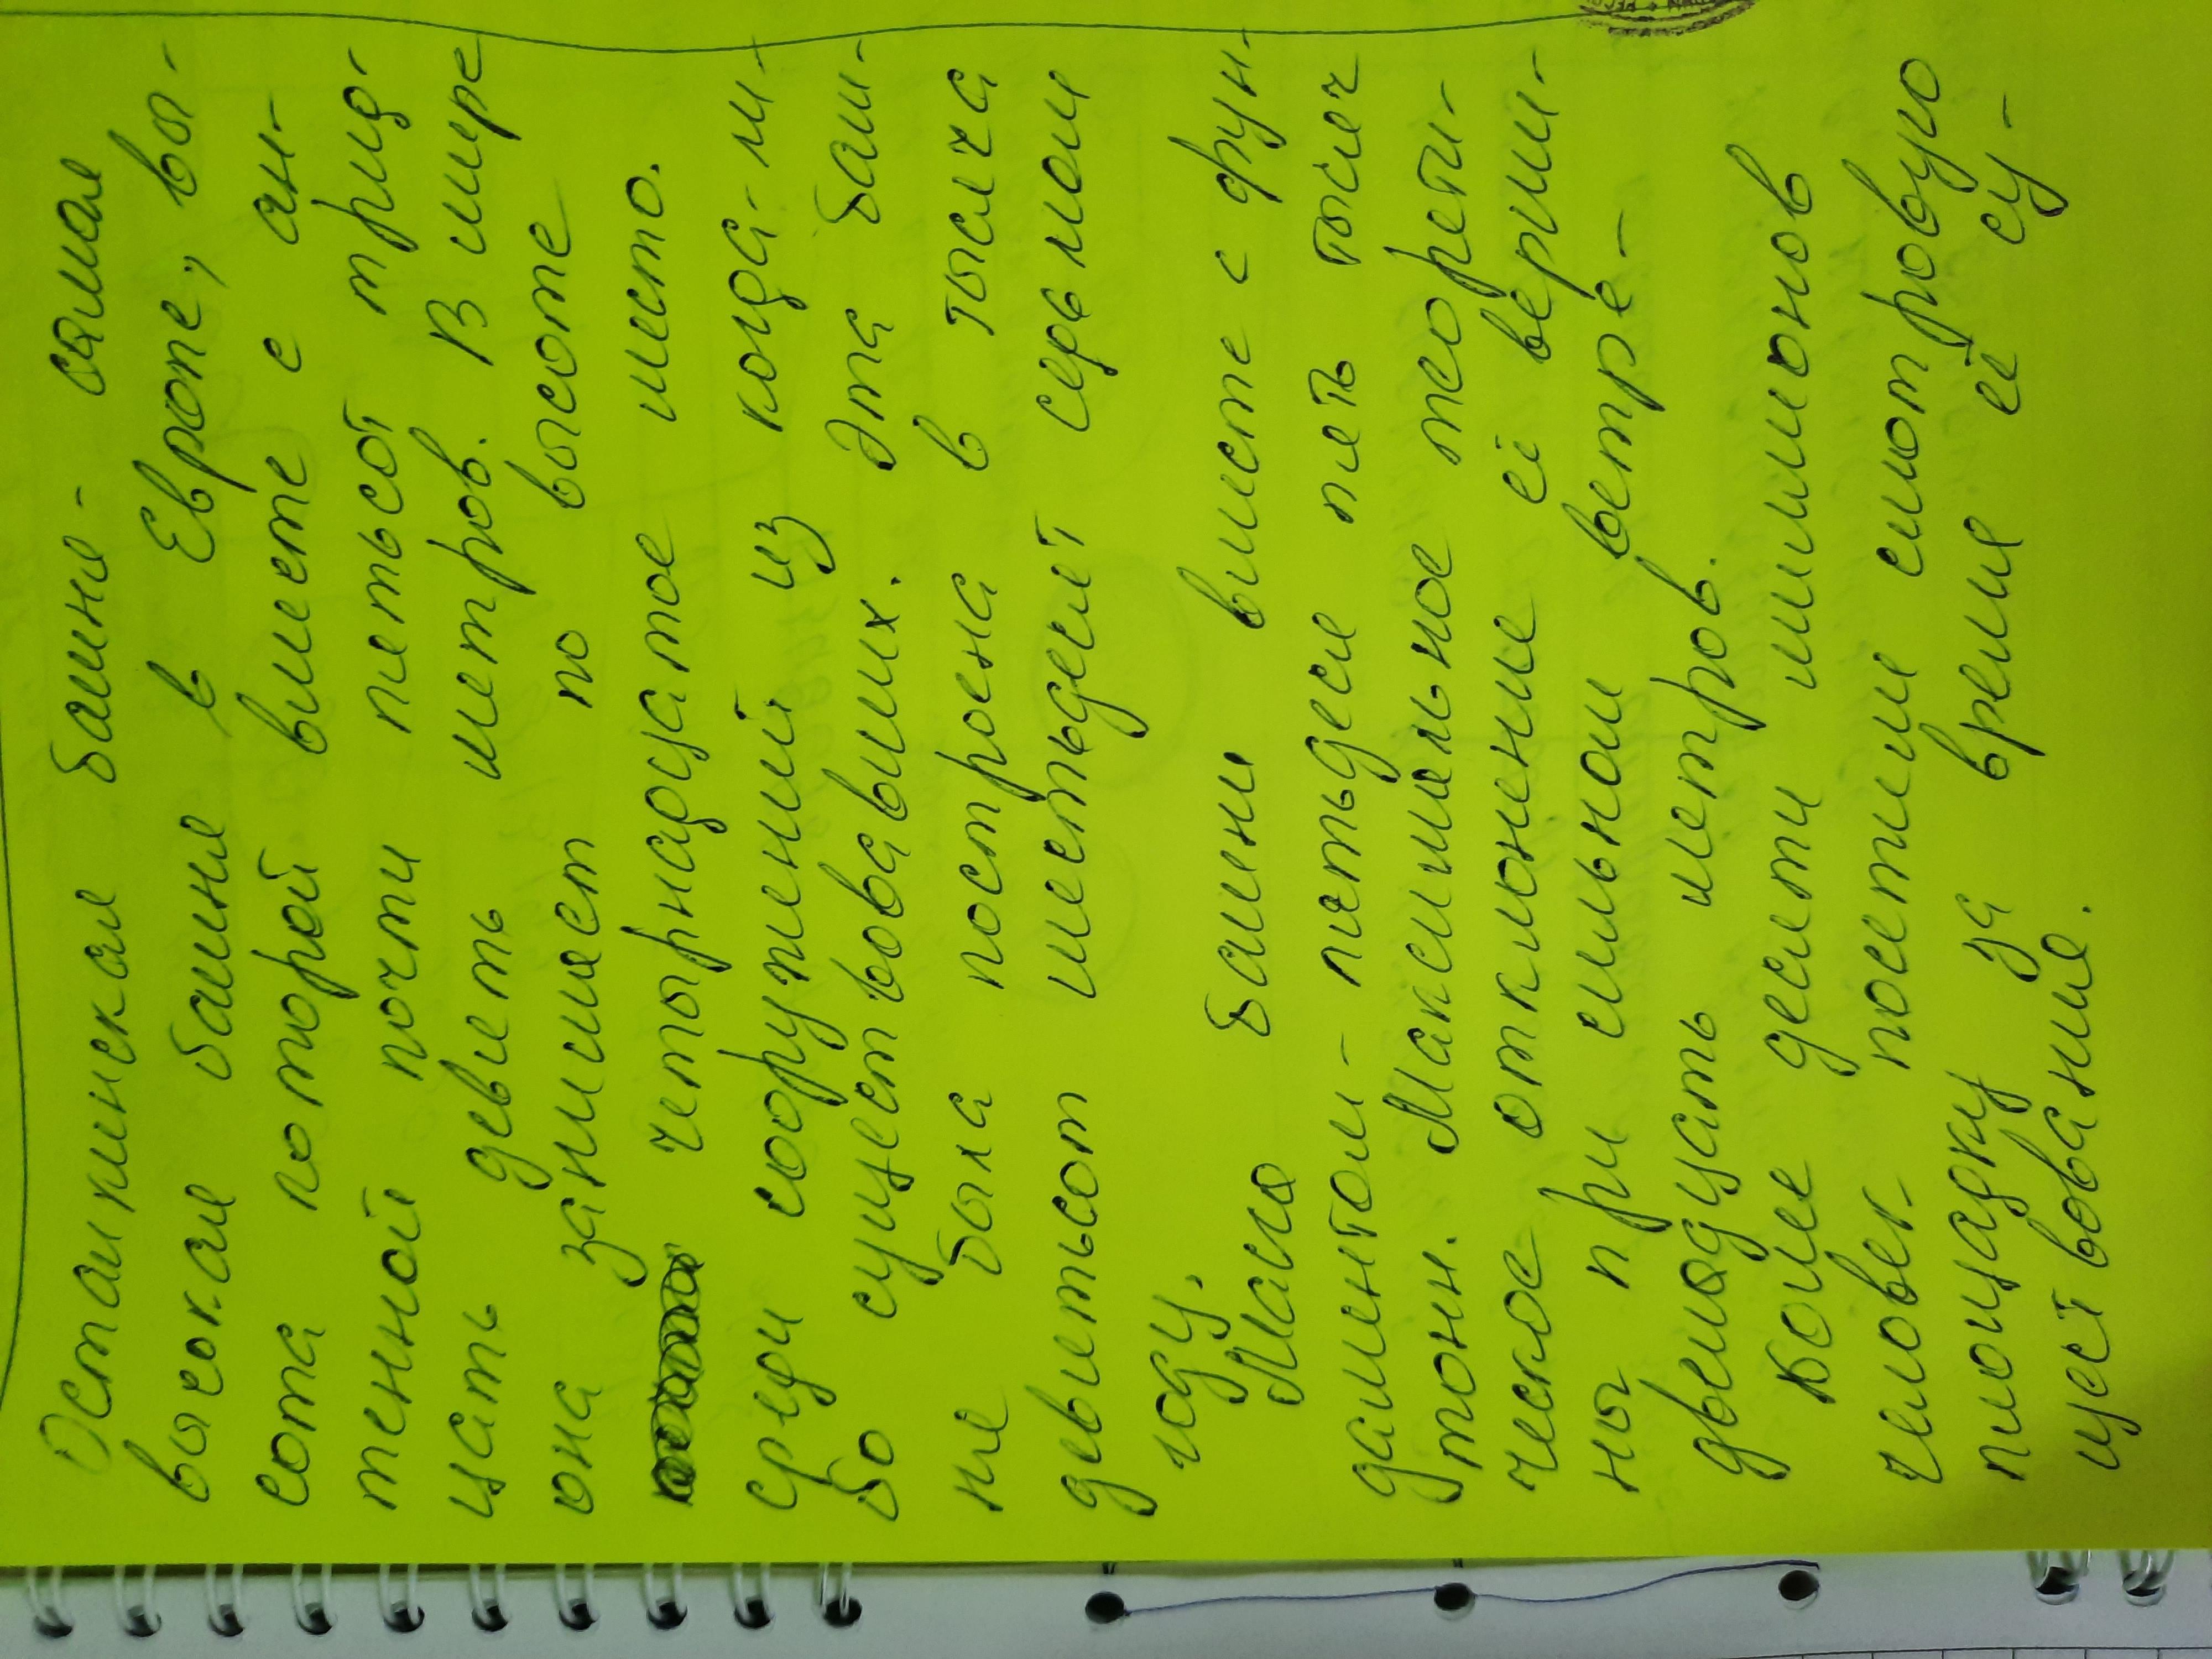 Останкинская башня - самая
высокая башня в Европе, вы-
сота которой вместе с ан-
тенной почти пятьсот трид-
цать девять метров. В мире
она занимает по высоте
четырнадцатое место.
среди сооружений из когда-ли-
бо существовавших. Эта баш-
ня была построена в тысяча
девятьсот шестьдесят седьмом
году.
Масса башни вместе с фун-
даментом - пятьдеся пять тысяч
тонн. Максимальное теорети-
ческое отклонение её верши-
ны при сильном ветре -
двенадцать метров.
Более десяти миллионов
человек посетили смотровую
площадку за время её су-
ществования.